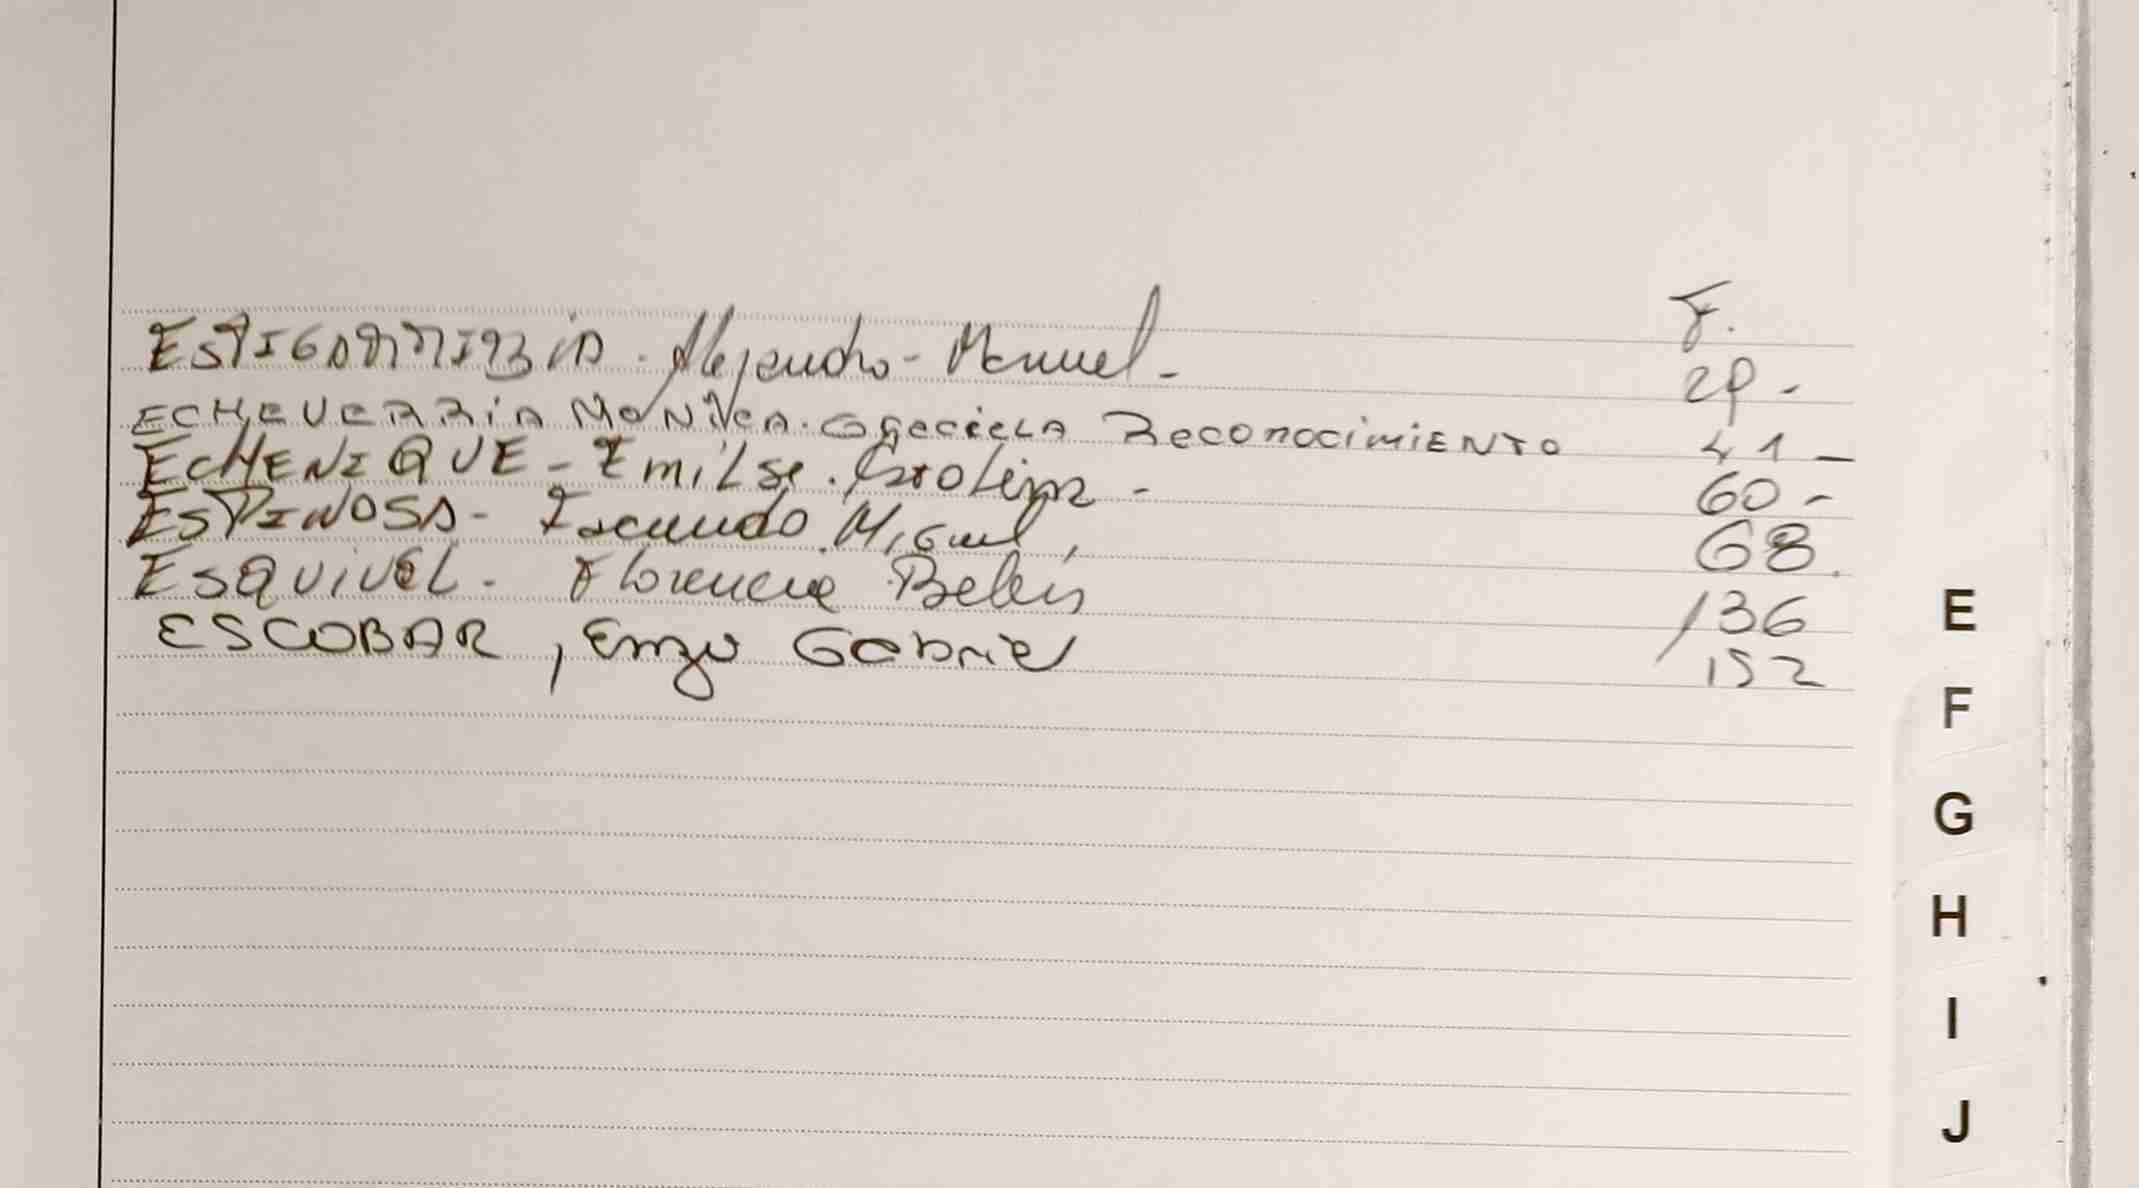 F.
ESTIGARRIBIA. Alejandro - Manuel - 29 -
ECHEVERRIA MONICA. GRACIELA Reconocimiento 41 -
ECHENIQUE - Emilse. Carolina - 60 -
ESPINOSA - Facundo Miguel, 68.
ESQUIVEL. Florencia Belén 136
ESCOBAR, Enzo Gabriel 152
E
F
G
H
I
J